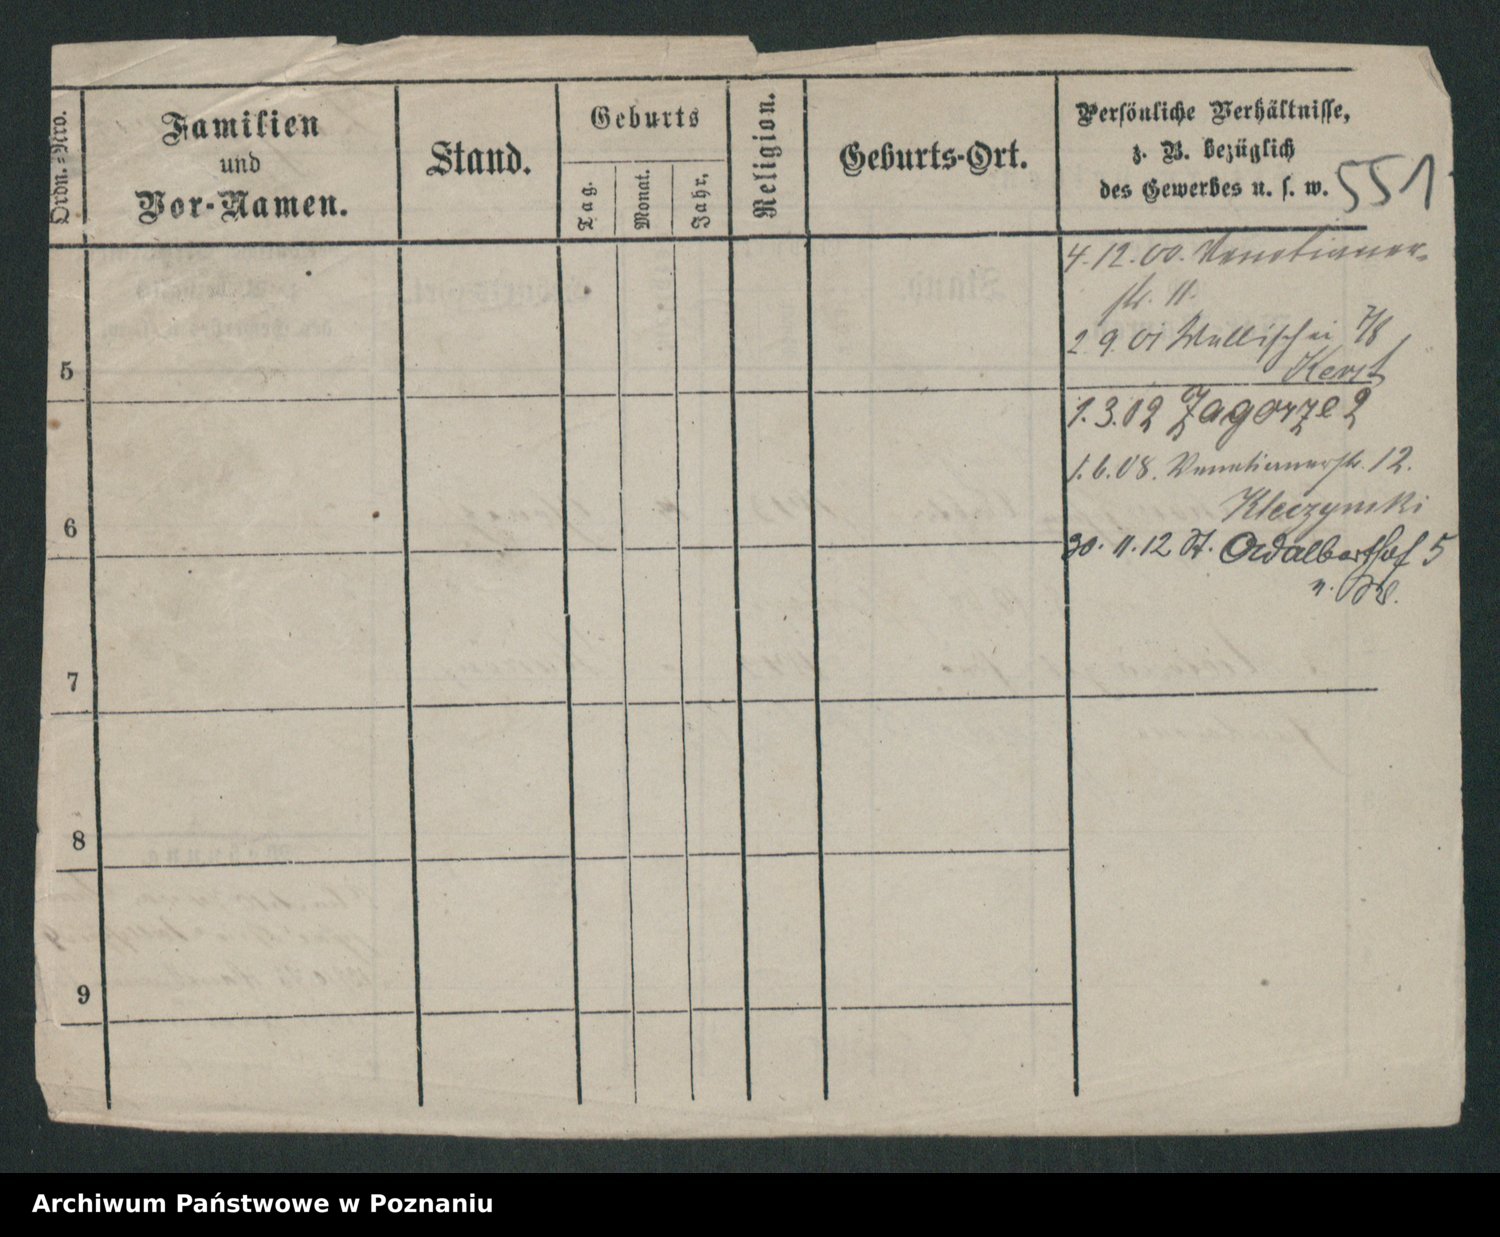 Ordn.-Nro.
Familien
und
Vor-Namen.
Stand.
Geburts
Tag.
Monat.
Jahr.
Religion.
Geburts-Ort.
Persönliche Verhältnisse,
z. B. bezüglich
des Gewerbes u. s. w.
551
4.12.00. Venetianer-
str. 11.
2.9.01 Wallischei 7/8
Kerst
1.3.02 Zagorze 2
1.6.08. Venetianerstr. 12.
Kleczynski
30.11.12 St. Adalberthof 5
5
6
7
8
9
Archiwum Państwowe w Poznaniu